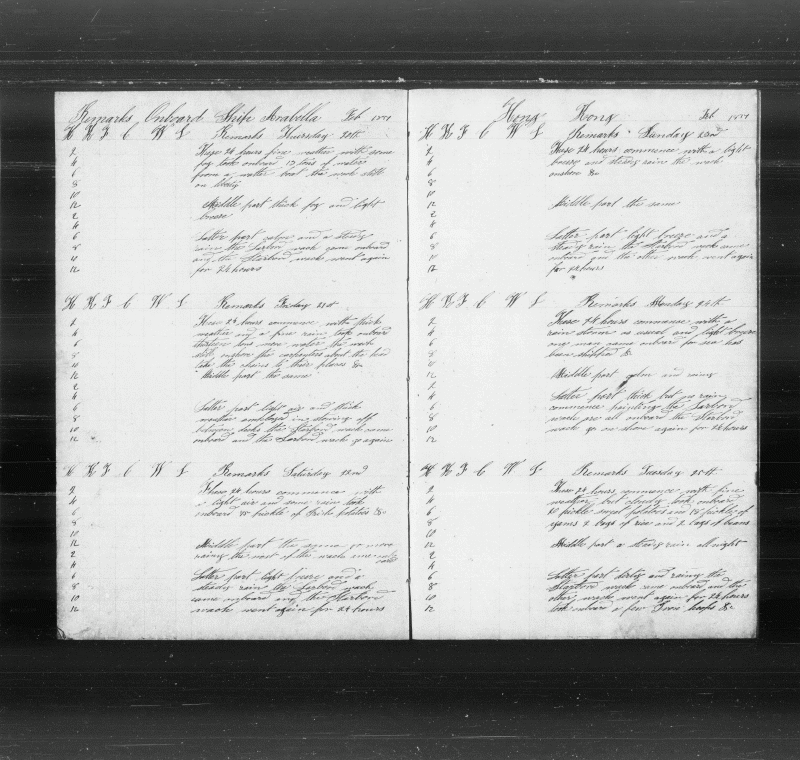 Remarks Onboard Ship Arabella Feb 1851
H K F C W L Remarks Thursday 20th
2 These 24 hours fine wether with some
4 fog took onbord 13 tons of water
6 from a watter boat the wach still
8 on liberty
10
12 Middle part thick fog and light
2 breeze
4
6 Latter part calm and a steady
8 rain the Larbord wach came onbord
10 and the Starbord wach went again
12 for 24 hours
H K F C W L Remarks Friday 21st
2 These 24 hours commence with thick
4 weather and a fine rain took onbord
6 thirteen tons more water the wach
8 still onshore the carpenters about the
10 take the chains to their places &c
12 Middle part the same
2
4
6 Latter part light air and thick
8 weather employed in stowing off
10 between decks the Starbord wach came
12 onbord and the Larbord wach go again
H K F C W L Remarks Saturday 22nd
2 These 24 hours commence with
4 a light air and some rain took
6 onbord 38 pickle of Irish Potatoes &c
8
10
12 Middle part the same
2 raing the rest of the wach
4
6 Latter part light breeze and a
8 steady rain the Larbord wach
10 came onbord and the Starbord
12 wach went again for 24 hours
Hong Kong Feb 1851
H K F C W L Remarks Sunday 23rd
2 These 24 hours commence with a light
4 breeze and steady rain the wach
6 onshore &c
8
10
12 Middle part the same
2
4
6 Latter part light breeze and a
8 steady rain the Starbord wach came
10 onbord and the other wach went again
12 for 24 hours
H K F C W L Remarks Monday 24th
2 These 24 hours commence with a
4 rain storm as usual and light breeze
6 one man came onbord for sea has
8 been shipped &c
10
12 Middle part calm and raing
2
4 Latter part thick but no rain
6 commence painting the Larbord
8 wach are all onbord the Starbord
10 wach go on shore again for 24 hours
12
H K F C W L Remarks Tuesday 25th
2 These 24 hours commence with fine
4 weather but cloudy took onbord
6 10 pickle sweet potatoes and 18 pickle of
8 yams 2 bags of rice and 2 bags of beans
10
12 Middle part a steady rain all night
2
4
6 Latter part dirty and raing the
8 Starbord wach came onbord and the
10 other wach went again for 24 hours
12 took onbord a few Iron hoops &c